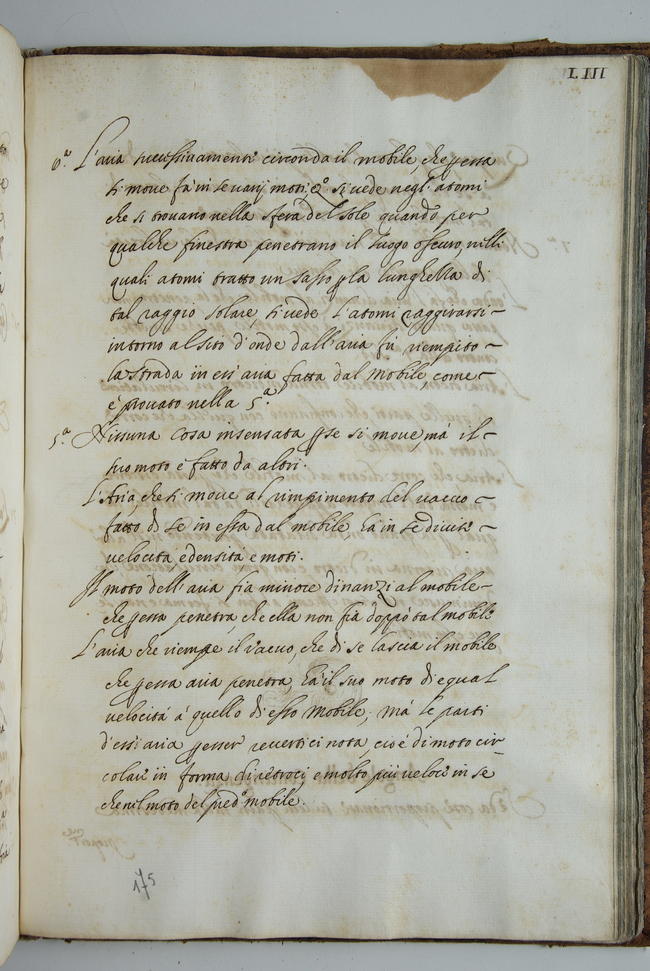 LIII
6.ª L'aria succussivamente circonda il mobile, che p essa
si move fà in se varij moti: Q.º si vede negl'atomi
che si trovano nella sfera del sole quando per
qualche finestra penetrano il luogo oscuro, nelli
quali atomi tratto un sasso p la lunghezza di
tal raggio solare, si vede l'atomi raggirarsi
intorno al sito d'onde dall'aria fù riempito
la strada in essi aria fatta dal mobile, come
è provato nella 5.ª
5.ª Nissuna cosa insensata p se si move, mà il
suo moto è fatto da altri.
L'Aria, che si move al riempimento del vacuo
fatto di se in essa dal mobile, hà in se diverse
velocità, e densità, e moti.
Il moto dell'aria fia minore dinanzi al mobile
che p essa penetra, che ella non fia doppò tal mobile
L'aria che riempe il vacuo, che di se lascia il mobile
che p essa aria penetra, hà il suo moto di equal
velocità à quello di esso mobile, mà le parti
d'essi aria p esser
cioè di moto cir-
colare in forma di e molto più veloci in se
che nel moto del pred.º mobile.
175